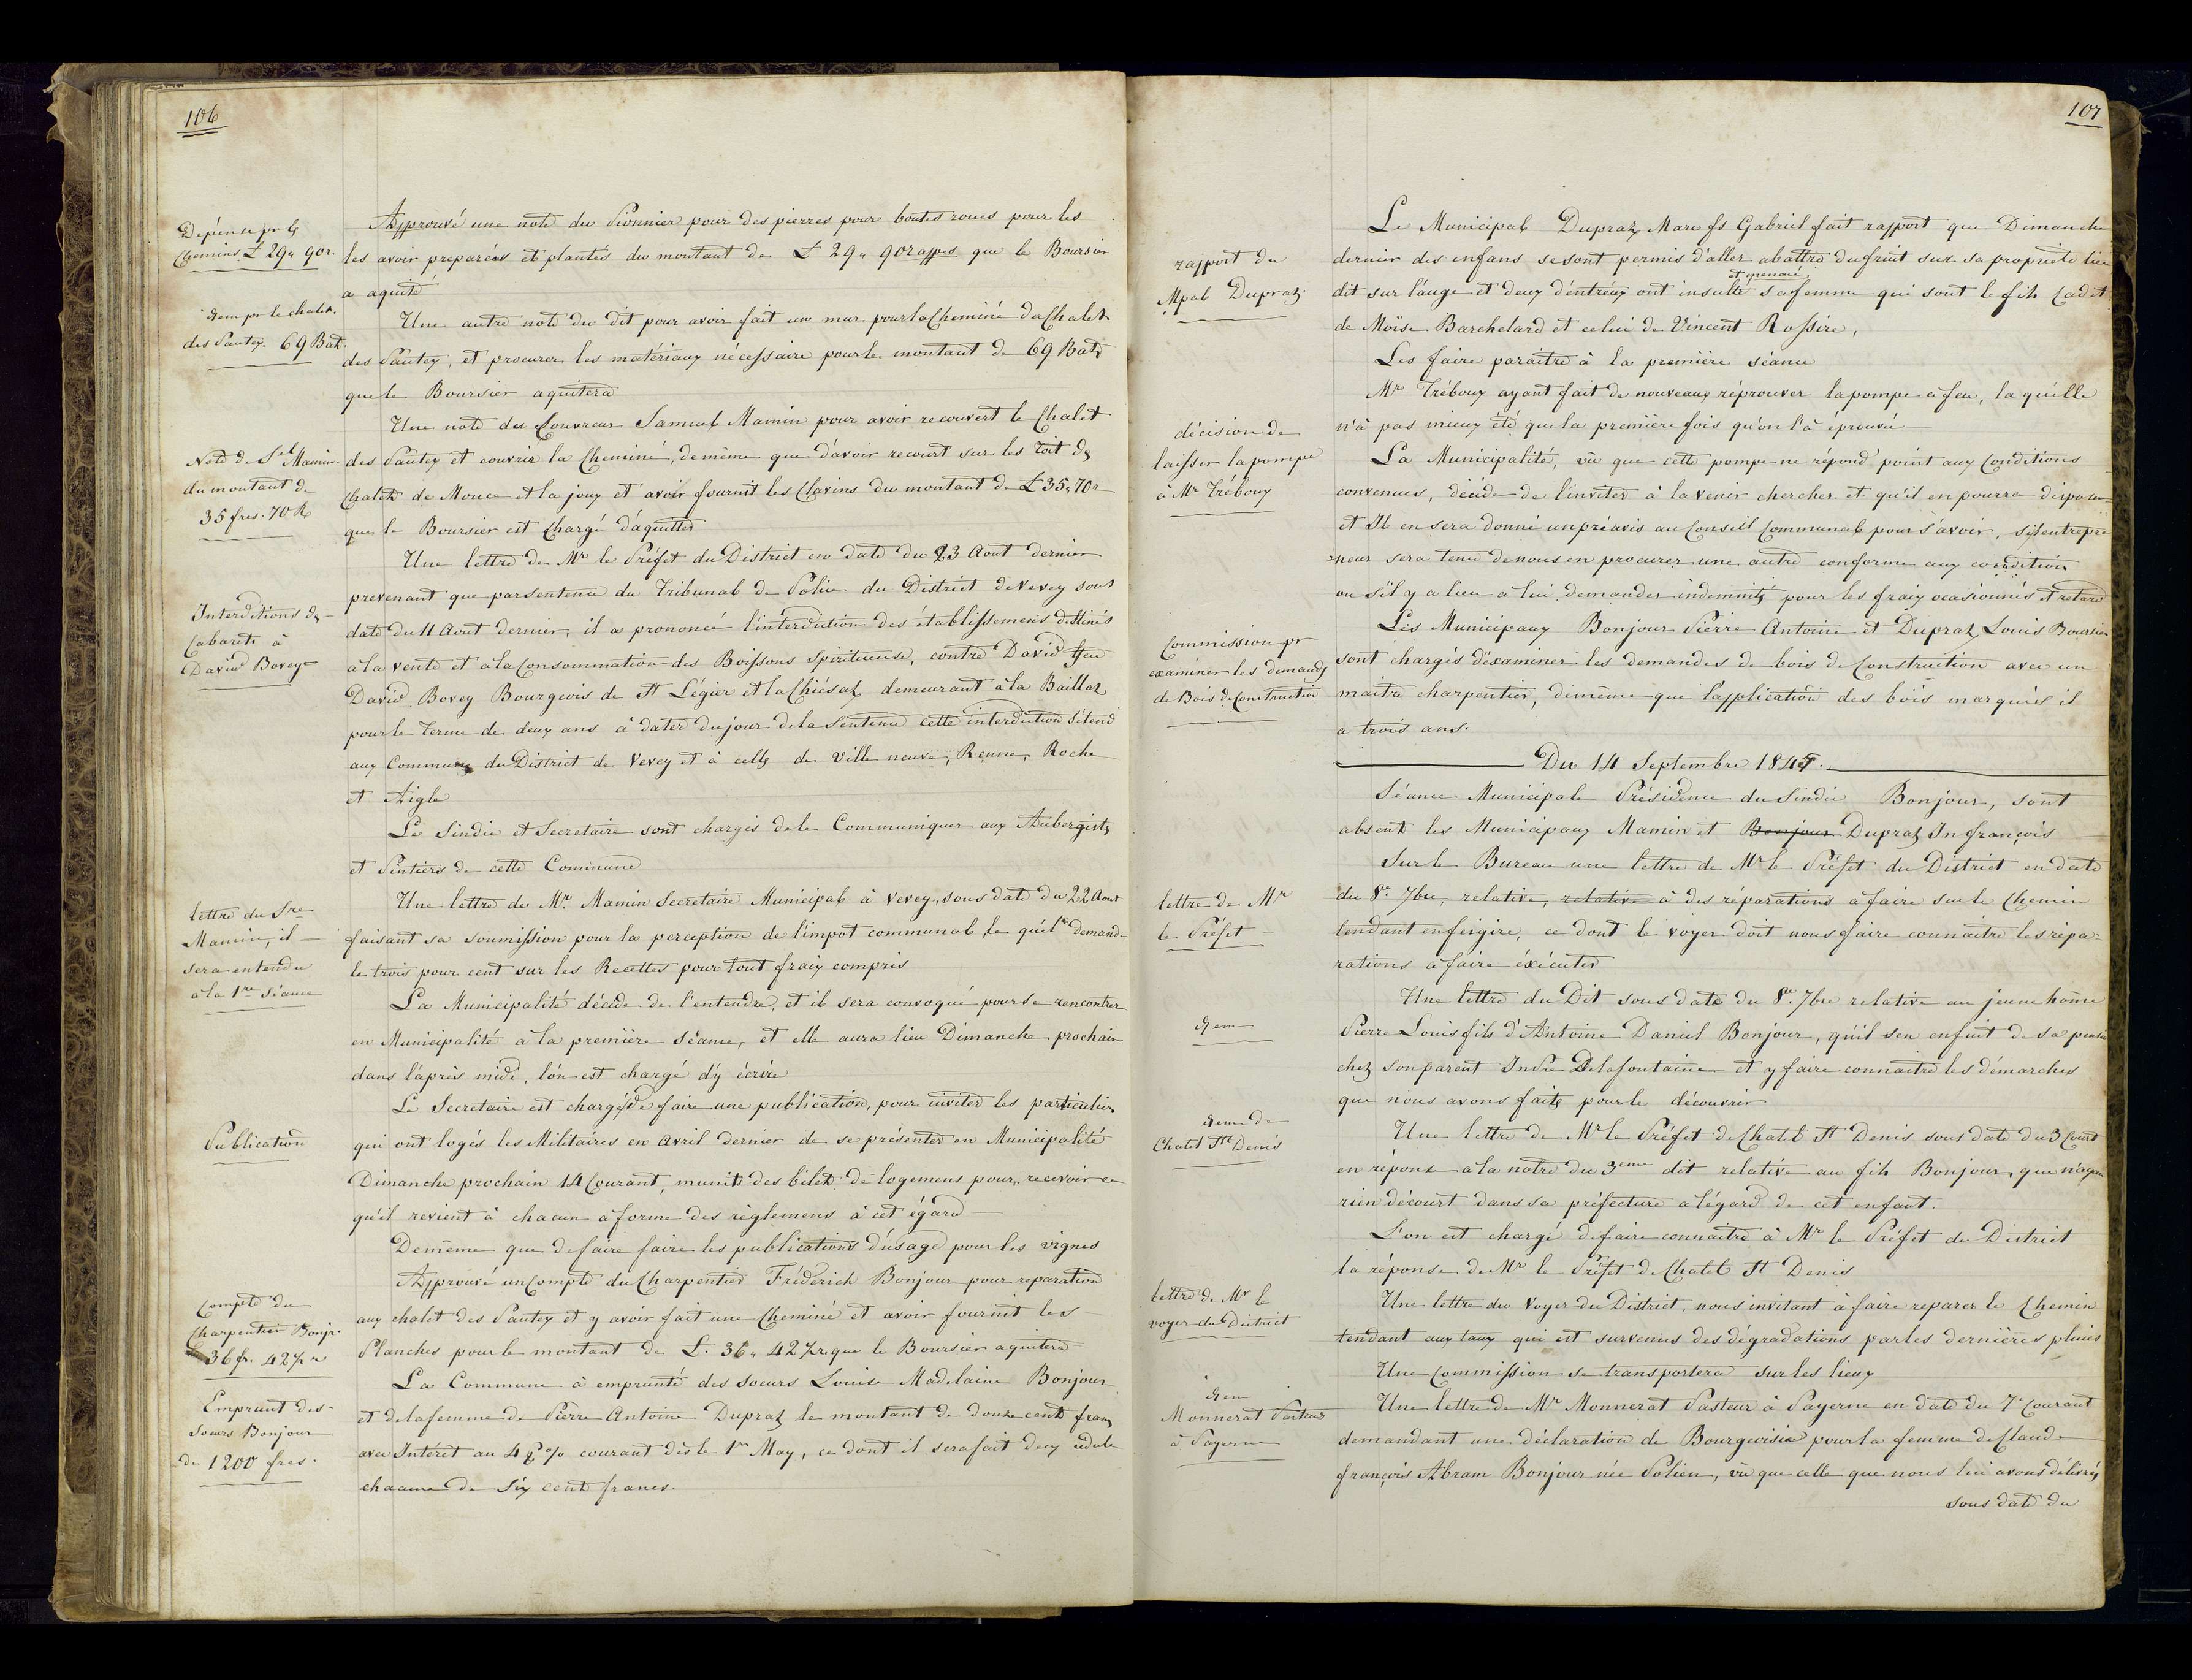 106
Dépense pr les
Chemins £ 29 " 90 r.
Idem pr le chalet
des Pautex. 69 Batz
Approuvé une note du Pionnier pour des pierres pour boutes roues pour les
les avoir preparées et plantés du montant de £ 29 " 90 rappes que le Boursier
a aquité
Une autre note du dit pour avoir fait un mur pour la Cheminé du Chalet
des Pautex, et procurer les matériaux nécessaire pour le montant de 69 Batz
que le Boursier aquittera
Note de Sel Mamin
du montant de
35 frcs. 70 R
Une note du Couvreur Samuel Mamin pour avoir recouvert le Chalet
des Pautex et couvrir la Cheminé, de même que d'avoir recourt sur les toit des
Chalets de Mouce et la joux et avoir fournit les Clavins du montant de £ 35 " 70 r
que le Boursier est Chargé d'aquitter
Interditions des
Cabarets à
David Bovey
Une lettre de Mr le Préfet du District en date du 23 Aout dernier
prevenant que par sentence du Tribunal de Police du District de Vevey sous
date du 11 Aout dernier, il a prononcé l'interdiction des établissemens destinés
à la vente et à la Consommation des Boissons Spiritueuse, contre David ffeu
David Bovey Bourgeois de St Légier et la Chiésaz demeurant à la Baillaz
pour le terme de deux ans à dater du jour de la Sentence cette interdiction s'étend
aux Communes du District de Vevey et à celles de Ville neuve, Renne, Roche
et Aigle
Le Sindic et Secretaire sont chargés de le Communiquer aux Aubergistes
et Pintiers de cette Commune
lettre du Sre
Mamin, il
sera entendu
à la 1re Séance
Une lettre de Mr. Mamin Secretaire Municipal à Vevey, sous date du 22 Aout
faisant sa soumission pour la perception de l'impot communal, le qu'el demande
le trois pour cent sur les Recettes pour tout fraix compris
La Municipalité décide de l'entendre, et il sera convoqué pour se rencontrer
en Municipalité à la première séance, et elle aura lieu Dimanche prochain
dans l'après midi, l'on est chargé d'y écrire
Publication
Le Secretaire est chargé de faire une publication, pour inviter les particuliers
qui ont logés les Militaires en Avril dernier de se présenter en Municipalité
Dimanche prochain 14 Courant, munit des bilets de logemens pour recevoir ce
qu'il revient à chacun à forme des règlemens à cet égard
De même que de faire faire les publications d'usage pour les vignes
Compte du
Charpentier Bonjr
36 fr. 42½ r
Approuvé un Compte du Charpentier Fréderich Bonjour pour reparation
aux chalet des Pautex et y avoir fait une Cheminé et avoir fournit les
Planches pour le montant de £. 36 " 42½ r que le Boursier aquitera
Emprunt des
Soeurs Bonjour
de 1200 frcs.
La Commune à emprunté des Soeurs Louise Madelaine Bonjour
et de la femme de Pierre Antoine Dupraz le montant de douze cent francs
avec Intérêt au % courant dès le 1er May, ce dont il sera fait deux cédule
chacune de Six cent francs.
107
rapport du
Mpal Dupraz
Le Municipal Dupraz Marc fs Gabriel fait rapport que Dimanche
dernier des enfans se sont permis d'aller abattre du fruit sur sa propriété lieu
et menacé
dit sur l'auge et deux d'entreux ont insulté sa femme qui sont le fils Cadet
de Moïse Barchelard et celui de Vincent Rossire,
Les faire paraitre à la première séance
décision de
laisser la pompe
à Mr Tréboux
Mr Tréboux ayant fait de nouveaux réprouver la pompe à feu, la qu'elle
n'à pas mieux été que la première fois qu'on l'à éprouvé
La Municipalité, vû que cette pompe ne répond point aux Conditions
convenues, décide de l'inviter à la venir chercher et qu'il en pourra disposer
et Il en sera donné un préavis au Conseil Communal pour s'avoir, si l'entrepre
neur sera tenu de nous en procurer une autre conforme aux condition
ou s'il y a lieu à lui demander indemnité pour les fraix ocasionnés et retard
Commission pr
examiner les demandes
de Bois de Construction
Les Municipaux Bonjour Pierre Antoine et Dupraz Louis Boursier
sont chargés d'examiner les demandes de bois de Construction avec un
maitre charpentier, de même que l'application des bois marqués il
a trois ans.
Du 14 Septembre 1845.
Séance Municipale Présidence du Sindic Bonjour, sont
absent les Municipaux Mamin et Bonjour Dupraz Jn françois
lettre de Mr
le Préfet
Sur le Bureau une lettre de Mr le Préfet du District en date
du 8e. 7bre, relative, relative à des réparations à faire sur le Chemin
tendant en feigire, ce dont le voyer doit nous faire connaitre les répa-
rations à faire éxécuter
Idem
Une lettre du Dit sous date du 8e. 7bre relative au jeune hôme
Pierre Louis fils d'Antoine Daniel Bonjour, qu'il s'en enfuit de sa pension
chez son parent Delafontaine et y faire connaitre les démarches
que nous avons faites pour le découvrir
Idem de
Chatel St Denis
Une lettre de Mr le Préfet de Chatel St Denis sous date du 3 Court
en réponse à la notre du 3eme dit relative au fils Bonjour, que n'ayant
rien découvt dans sa préfecture à l'égard de cet enfant.
L'on est chargé de faire connaitre à Mr le Préfet du District
la réponse de Mr le Préfet de Chatel St Denis
lettre de Mr le
voyer du District
Une lettre du Voyer du District, nous invitant à faire reparer le Chemin
tendant aux taux qui est survenus des dégradations par les dernières pluies
Une Commission se transportera sur les lieux
Idem
Monnerat Pasteur
à Payerne
Une lettre de Mr Monnerat Pasteur à Payerne en date du 7e Courant
demandant une déclaration de Bourgeoisie pour la femme de Claude
françois Abram Bonjour née Polien, vû que celle que nous lui avons délivrés
sous date du